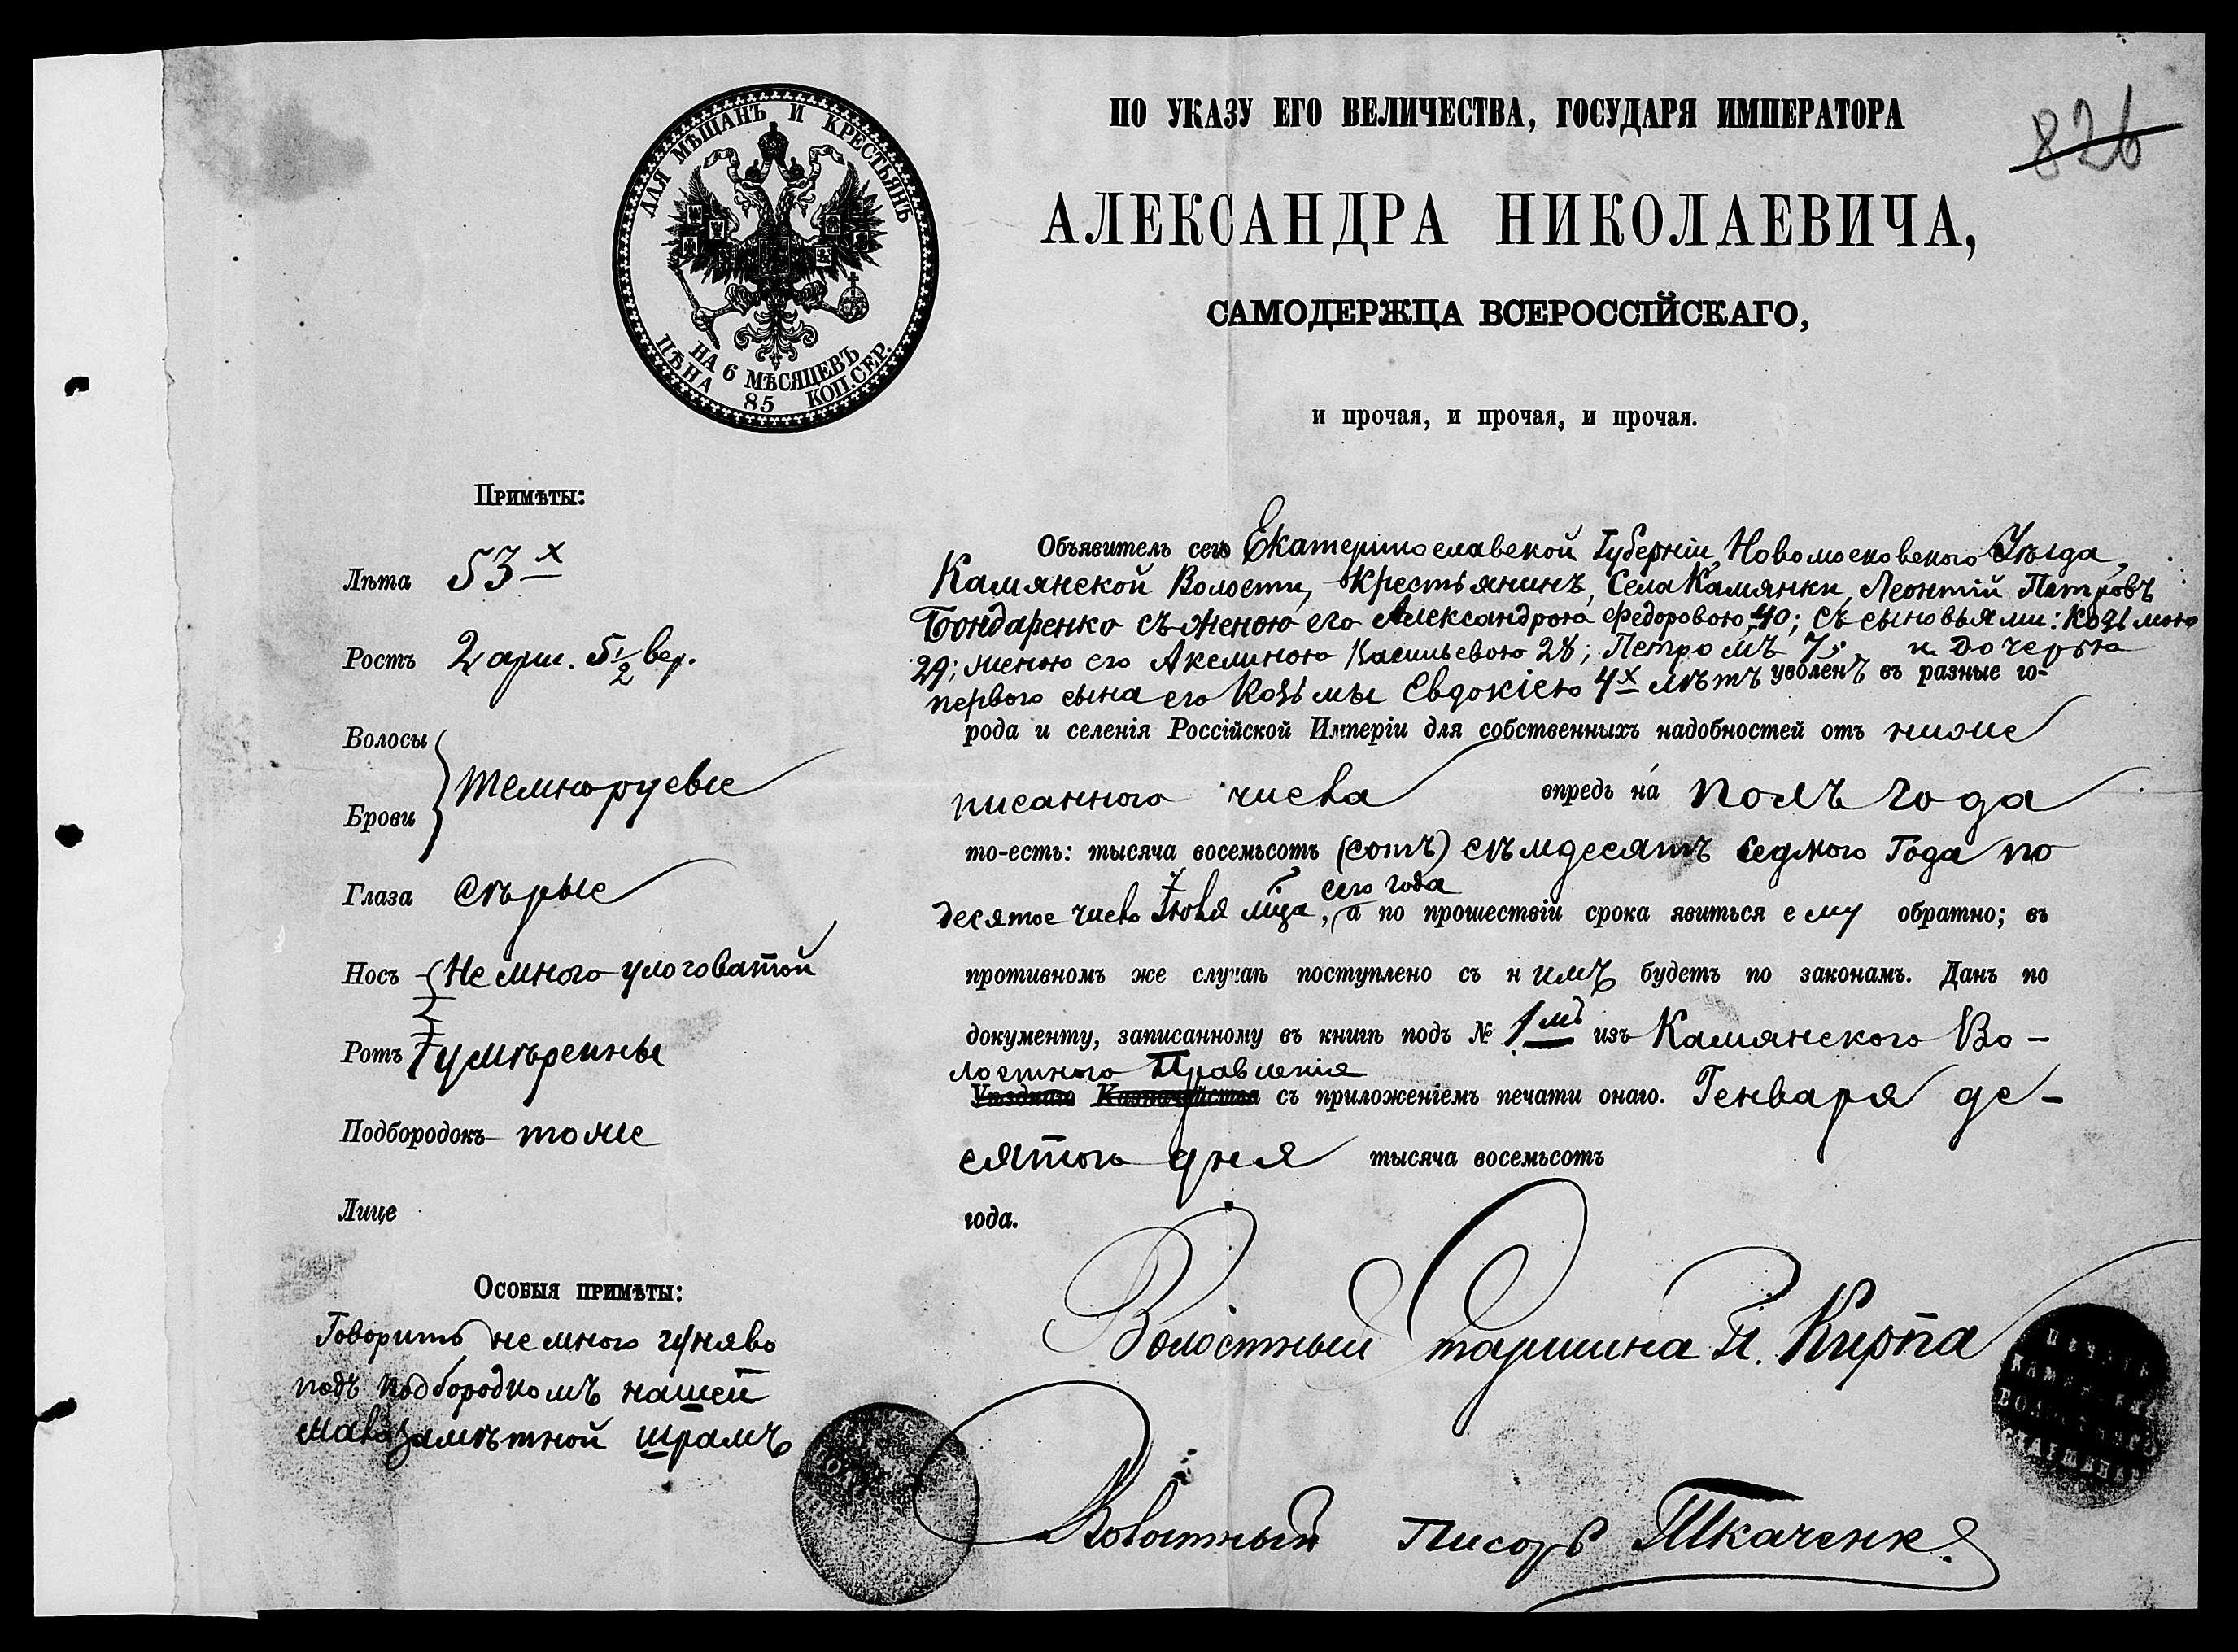 ДЛЯ МѢЩАНЪ И КРЕСТЬЯНЪ
НА 6 МѢСЯЦЕВЪ
ЦѢНА 85 КОП. СЕР.
826
ПО УКАЗУ ЕГО ВЕЛИЧЕСТВА, ГОСУДАРЯ ИМПЕРАТОРА
АЛЕКСАНДРА НИКОЛАЕВИЧА,
САМОДЕРЖЦА ВСЕРОССІЙСКАГО,
и прочая, и прочая, и прочая.
Примѣты:
Лѣта 53х
Ростъ 2 арш. 5 1/2 вер.
Волосы
Брови } темнорусые
Глаза Сѣрые
Носъ Не много углоговатой
Ротъ умѣренны
Подбородокъ тоже
Лице
Особыя примѣты:
Говоритъ не много гуняво
подъ подбородкомъ на шеи
мало замѣтной шрамъ
Объявитель сего Екатеринославской Губерніи, Новомосковскаго Уѣзда,
Камянской Волости, Крестьянинъ, Села Камянки, Леонтій Петровъ
Бондаренко съ женою его Александрою Федоровою 40; съ сыновьями: Козьмою
29; женою его Акелиною Васильевою 28; Петромъ 7; и дочерью
первого сына его Козьмы Евдокіею 4х лѣтъ уволенъ въ разные го-
рода и селенія Россійской Имперіи для собственныхъ надобностей отъ ниже
писанного числа впредь на полъ года
то-есть: тысяча восемьсотъ (сотъ) сѣмдесятъ седмого Года по
десятое число Іюля мца сего года, а по прошествіи срока явиться ему обратно; въ
противномъ же случаѣ поступлено съ нимъ будетъ по законамъ. Данъ по
документу, записанному въ книгѣ подъ № 1мъ изъ Камянского Во-
лостного Правленія
Уѣзднаго Казначейства съ приложеніемъ печати онаго. Генваря де-
сятого дня тысяча восемьсотъ
года.
Волостный Старшина П. Кирпа
Волостный Писарь Ткаченко
ПЕЧАТЬ
КАМЯНСКАГО
ВОЛОСТНАГО
СТАРШИНЫ